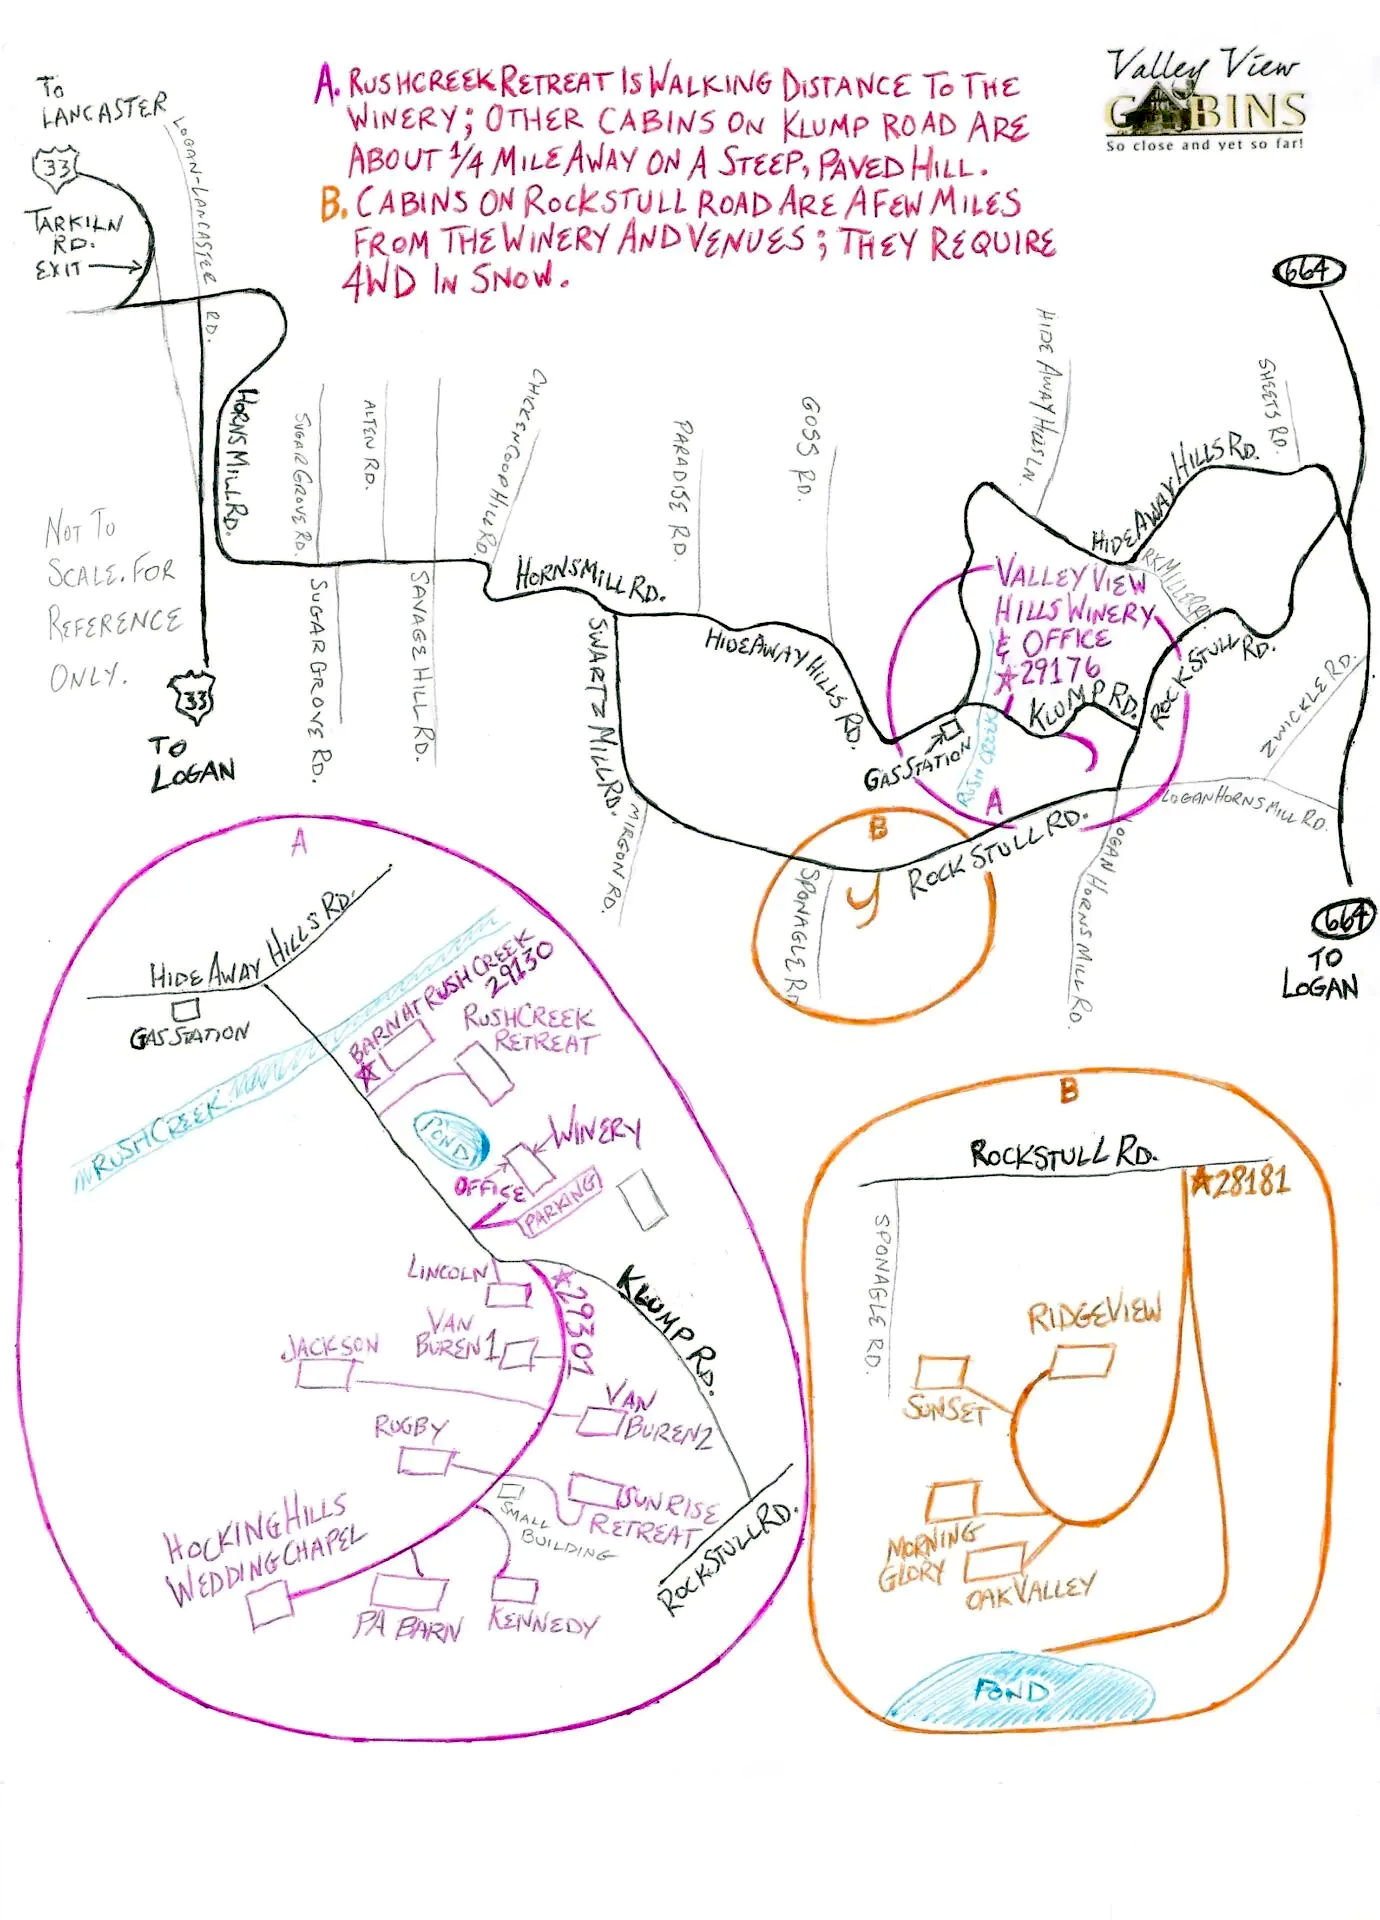 A. RUSHCREEK RETREAT IS WALKING DISTANCE TO THE
WINERY; OTHER CABINS ON KLUMP ROAD ARE
ABOUT 1/4 MILE AWAY ON A STEEP, PAVED HILL.
B. CABINS ON ROCKSTULL ROAD ARE A FEW MILES
FROM THE WINERY AND VENUES; THEY REQUIRE
4WD IN SNOW.
Valley View
CABINS
So close and yet so far!
TO
LANCASTER
33
TARKILN
RD.
EXIT
LOGAN-LANCASTER RD.
HORNS MILL RD.
NOT TO
SCALE. FOR
REFERENCE
ONLY.
33
TO
LOGAN
SUGAR GROVE RD.
SUGAR GROVE RD.
ALTEN RD.
SAVAGE HILL RD.
CHICKEN COOP HILL RD.
HORNSMILL RD.
SWARTZ MILL RD.
MIRGON RD.
PARADISE RD.
GOSS RD.
HIDEAWAY HILLS RD.
HIDE AWAY HILLS LN.
HIDEAWAY HILLS RD.
SHEETS RD.
664
VALLEY VIEW
HILLS WINERY
& OFFICE
29176
RUSH CREEK
KLUMP RD.
GAS STATION
A
ROCKSTULL RD.
ZWICKLE RD.
LOGAN HORNS MILL RD.
LOGAN HORNS MILL RD.
ROCKSTULL RD.
B
SPONAGLE RD
664
TO
LOGAN
A
HIDEAWAY HILLS RD.
GAS STATION
RUSH CREEK
BARN AT RUSH CREEK
29130
RUSHCREEK
RETREAT
POND
WINERY
OFFICE
PARKING
LINCOLN
29301
KLUMP RD.
VAN
BUREN 1
JACKSON
VAN
BUREN 2
RUGBY
SUNRISE
RETREAT
SMALL
BUILDING
HOCKING HILLS
WEDDING CHAPEL
PA BARN
KENNEDY
ROCKSTULL RD.
B
ROCKSTULL RD.
28181
SPONAGLE RD.
RIDGEVIEW
SUNSET
MORNING
GLORY
OAK VALLEY
POND